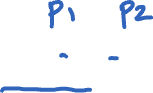 P1 P2